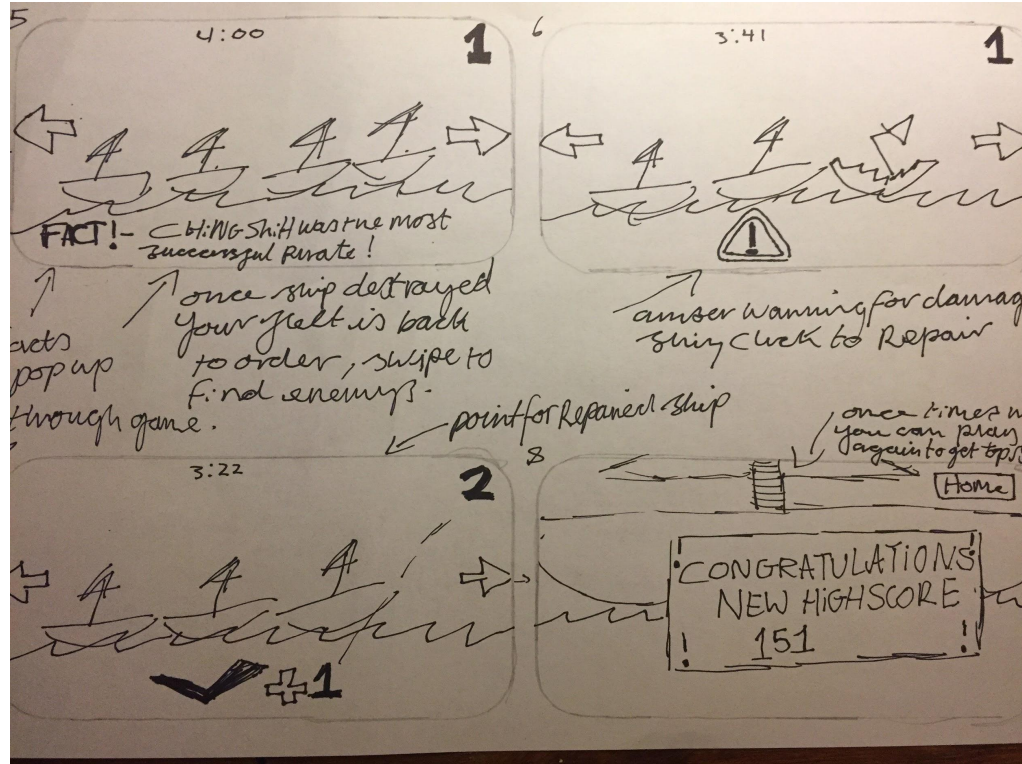 5
4:00
1
FACT!- CHiNG ShiH was the most
successful Pirate!
once ship destrayed
your fleet is back
to order, swipe to
find enemys.
pop up
through game.
6
3:41
1
amber warning for damag
ship click to Repair
point for Repaired ship
3:22
2
+1
8
once times
you can play
again to get top
Home
CONGRATULATIONS
NEW HiGHSCORE
151